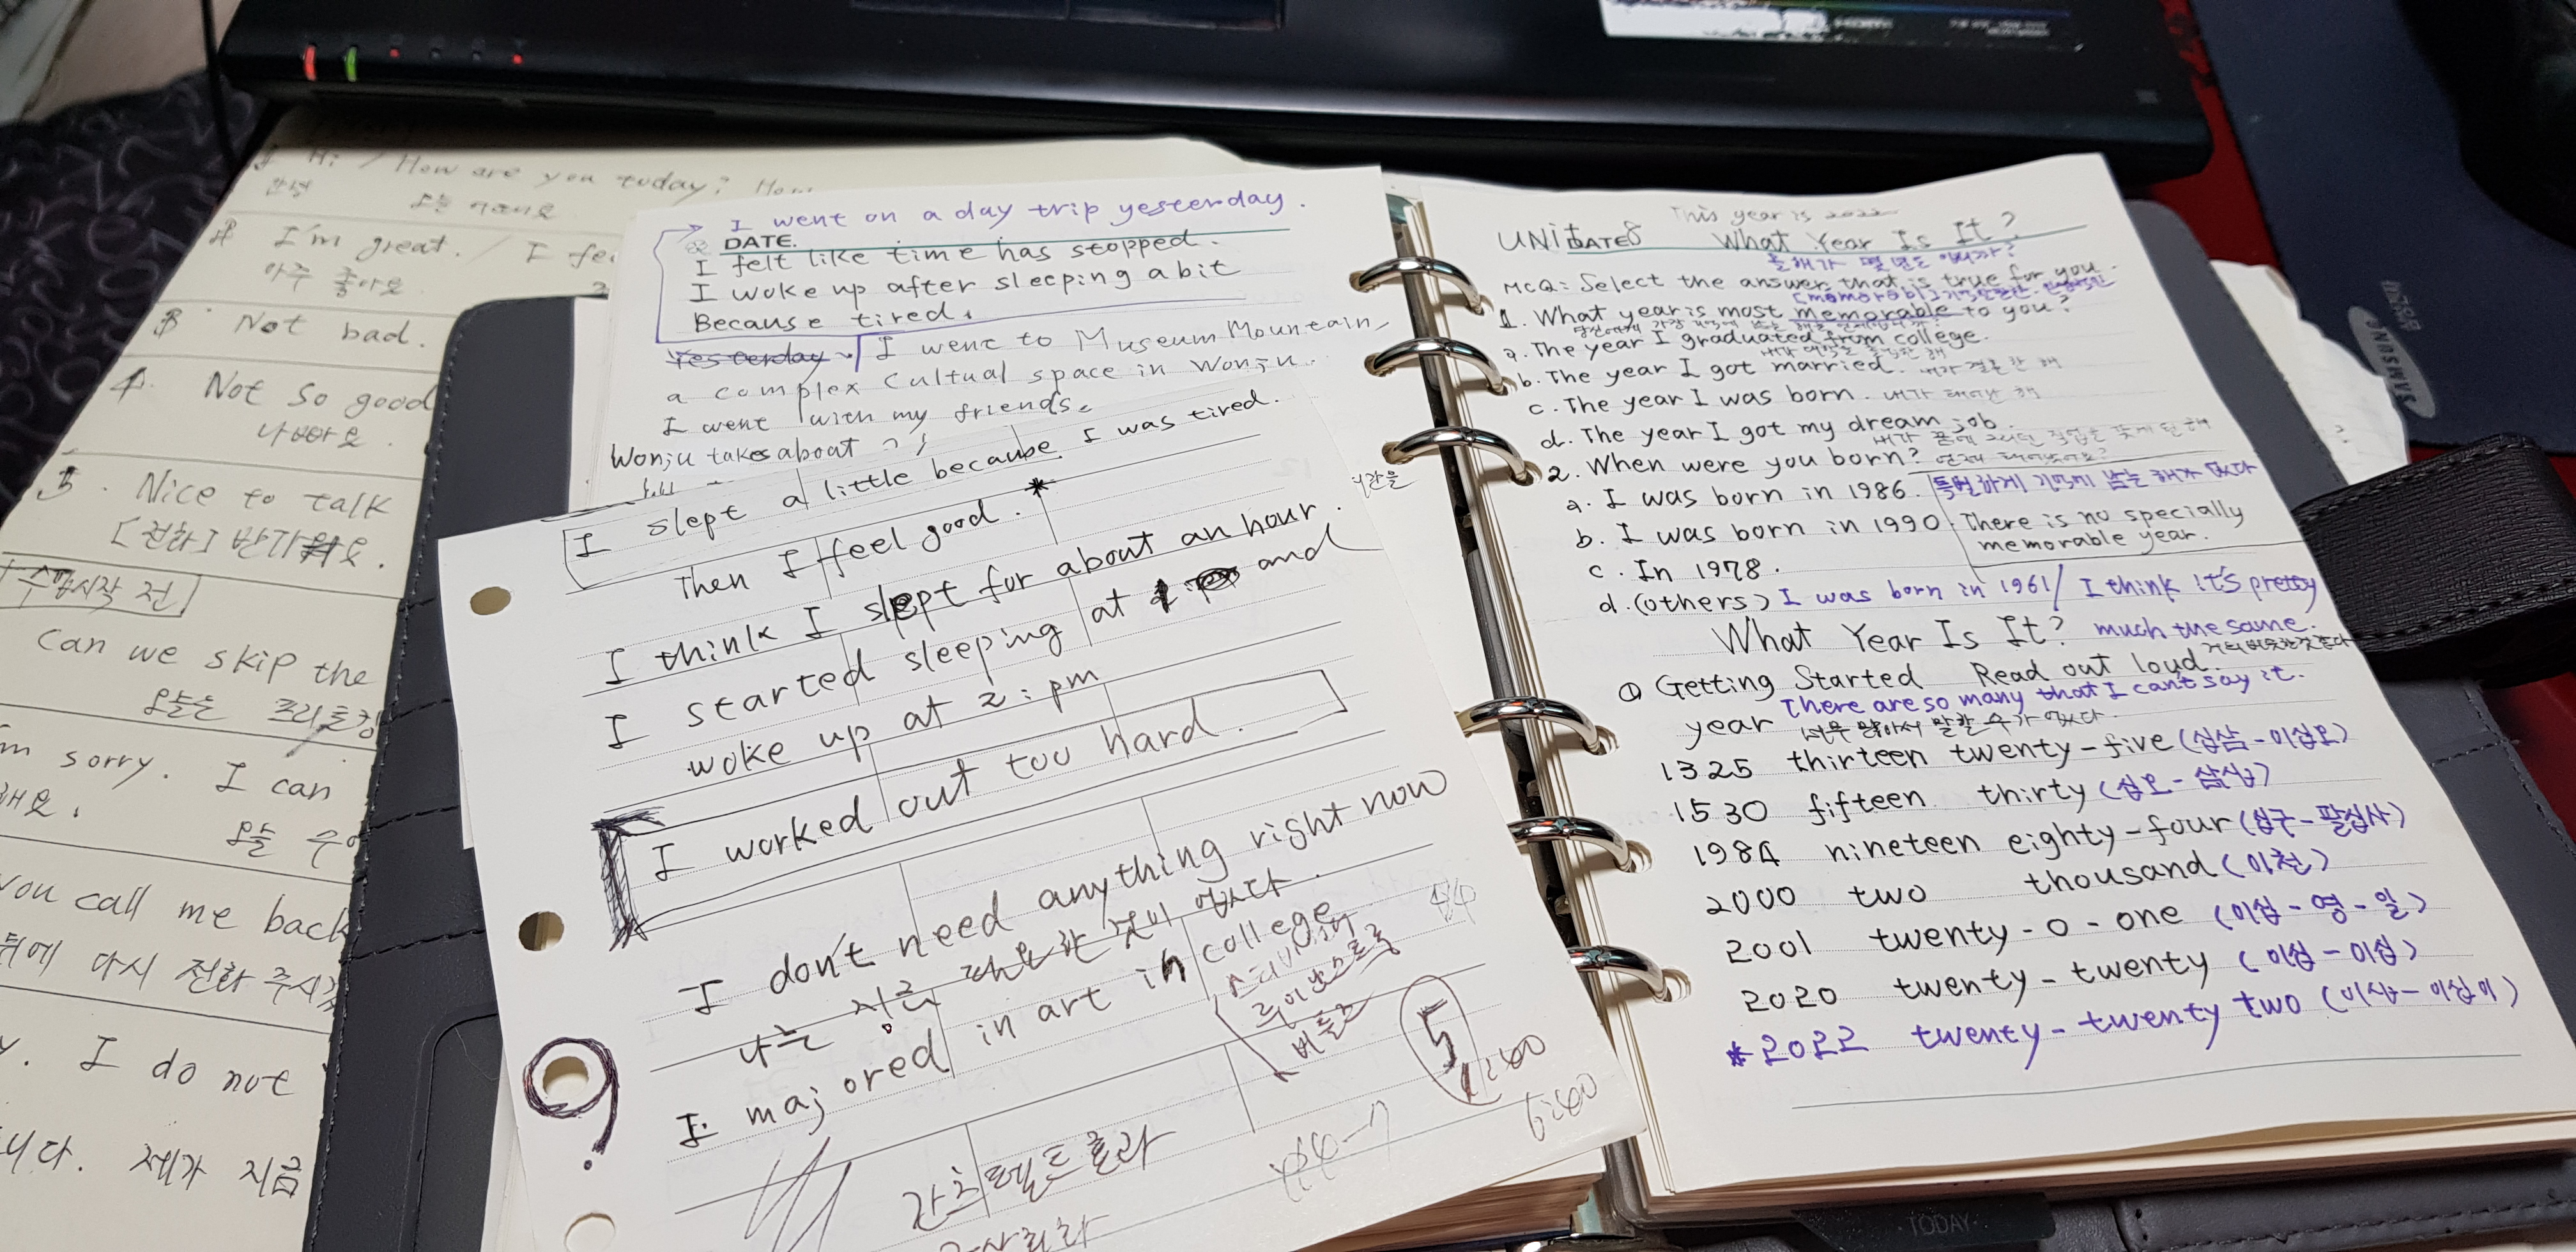 Hi / How are you today?
안녕 오늘 어때요
I'm great. / I fe
아주 좋아요
3 Not bad.
4. Not so good
나빠요.
5. Nice to talk
[전화] 반가워요.
수업시작 전
Can we skip the
오늘은 프리토킹
m sorry. I can
해요. 오늘 수
you call me back
뒤에 다시 전화 주시
y. I do not
니다. 제가 지금
I went on a day trip yesterday.
DATE.
I felt like time has stopped.
I woke up after sleeping a bit
Because tired.
Yesterday I went to Museum Mountain,
a complex cultual space in Wonju.
I went with my friends.
Wonju takes about
시간을
I slept a little because I was tired.
Then I feel good. *
I think I slept for about an hour.
I started sleeping at and
woke up at 2: pm
I worked out too hard.
I don't need anything right now
나는 지금 필요한 것이 없다.
I majored in art in college
스티비원더
루이암스트롱
비틀즈
44
5
1:40
6:40
간츠펠트효과
UNIT DATE 8
This year is 2022
What Year Is It?
올해가 몇 년도 입니까?
MCQ: Select the answer that is true for you.
[memorəbl] 기억할만한, 인상적인
1. What year is most memorable to you?
당신에게 가장 기억에 남는 해는 언제입니까?
a. The year I graduated from college.
내가 대학을 졸업한 해
b. The year I got married. 내가 결혼한 해
c. The year I was born. 내가 태어난 해
d. The year I got my dream job.
내가 꿈에 그리던 직업을 갖게 된 해
2. When were you born? 언제 태어났어요?
a. I was born in 1986. 특별하게 기억에 남는 해가 없다
b. I was born in 1990. There is no specially
memorable year.
c. In 1978.
d. (others) I was born in 1961/ I think it's pretty
What Year Is It? much the same.
거의 비슷한것 같다
① Getting Started Read out loud.
There are so many that I can't say it.
year 너무 많아서 말할 수가 없다.
1325 thirteen twenty-five (십삼-이십오)
1530 fifteen thirty (십오-삼십)
1984 nineteen eighty-four (십구-팔십사)
2000 two thousand (이천)
2001 twenty-o-one (이십-영-일)
2020 twenty-twenty (이십-이십)
* 2022 twenty-twenty two (이십-이십이)
TODAY
SAMSUNG